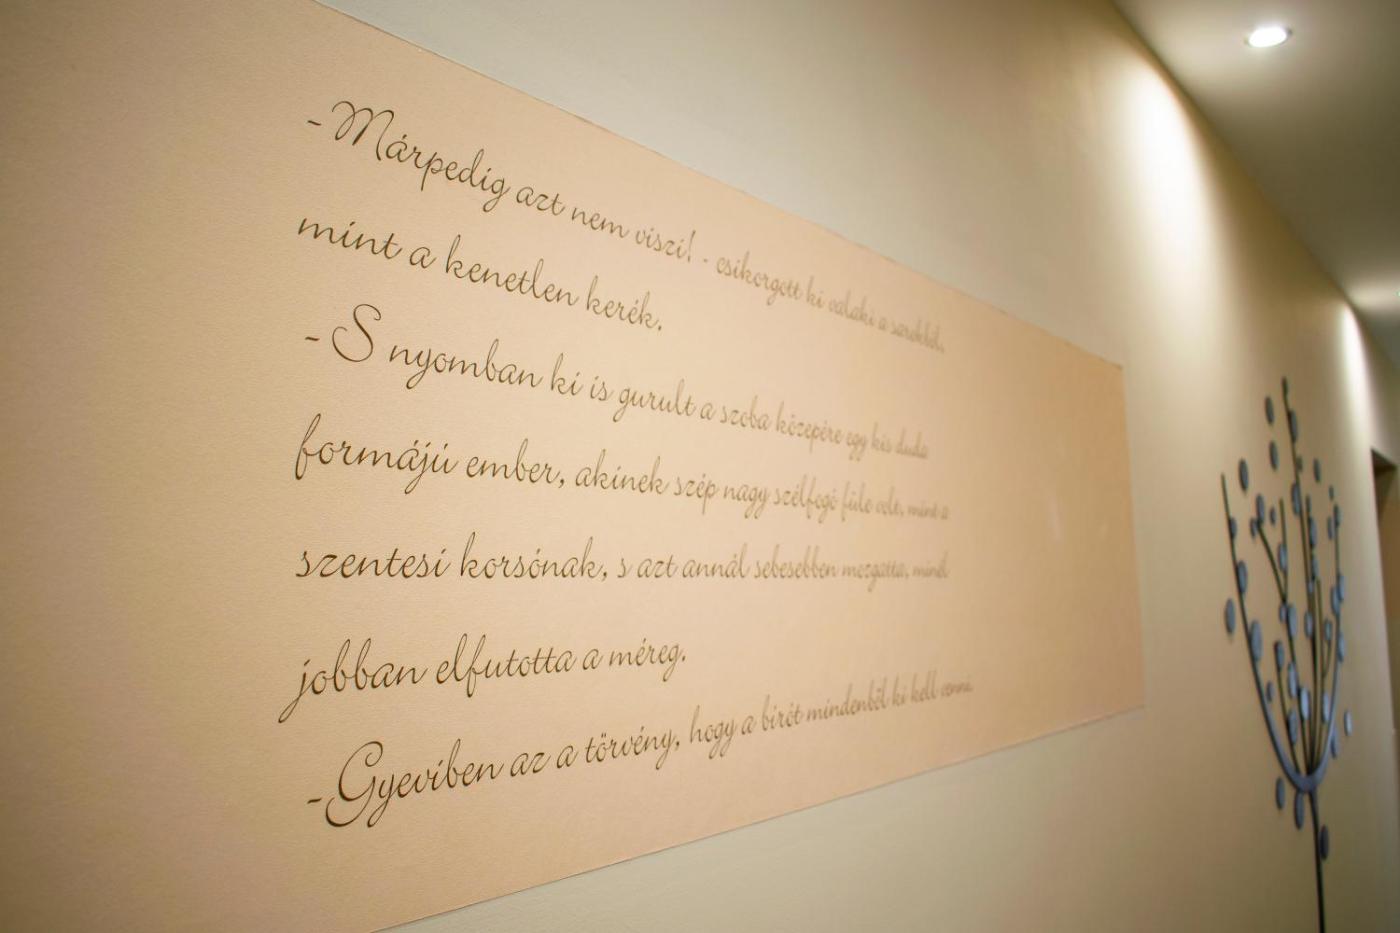 - Márpedig azt nem viszi! - csikorgott ki valaki a sarokból,
mint a kenetlen kerék.
- S nyomban ki is gurult a szoba közepére egy kis duda
formájú ember, akinek szép nagy szélfogó füle volt, mint a
szentesi korsónak, s azt annál sebesebben mozgatta, minél
jobban elfutotta a méreg.
- Gyeviben az a törvény, hogy a bírót mindenből ki kell venni.